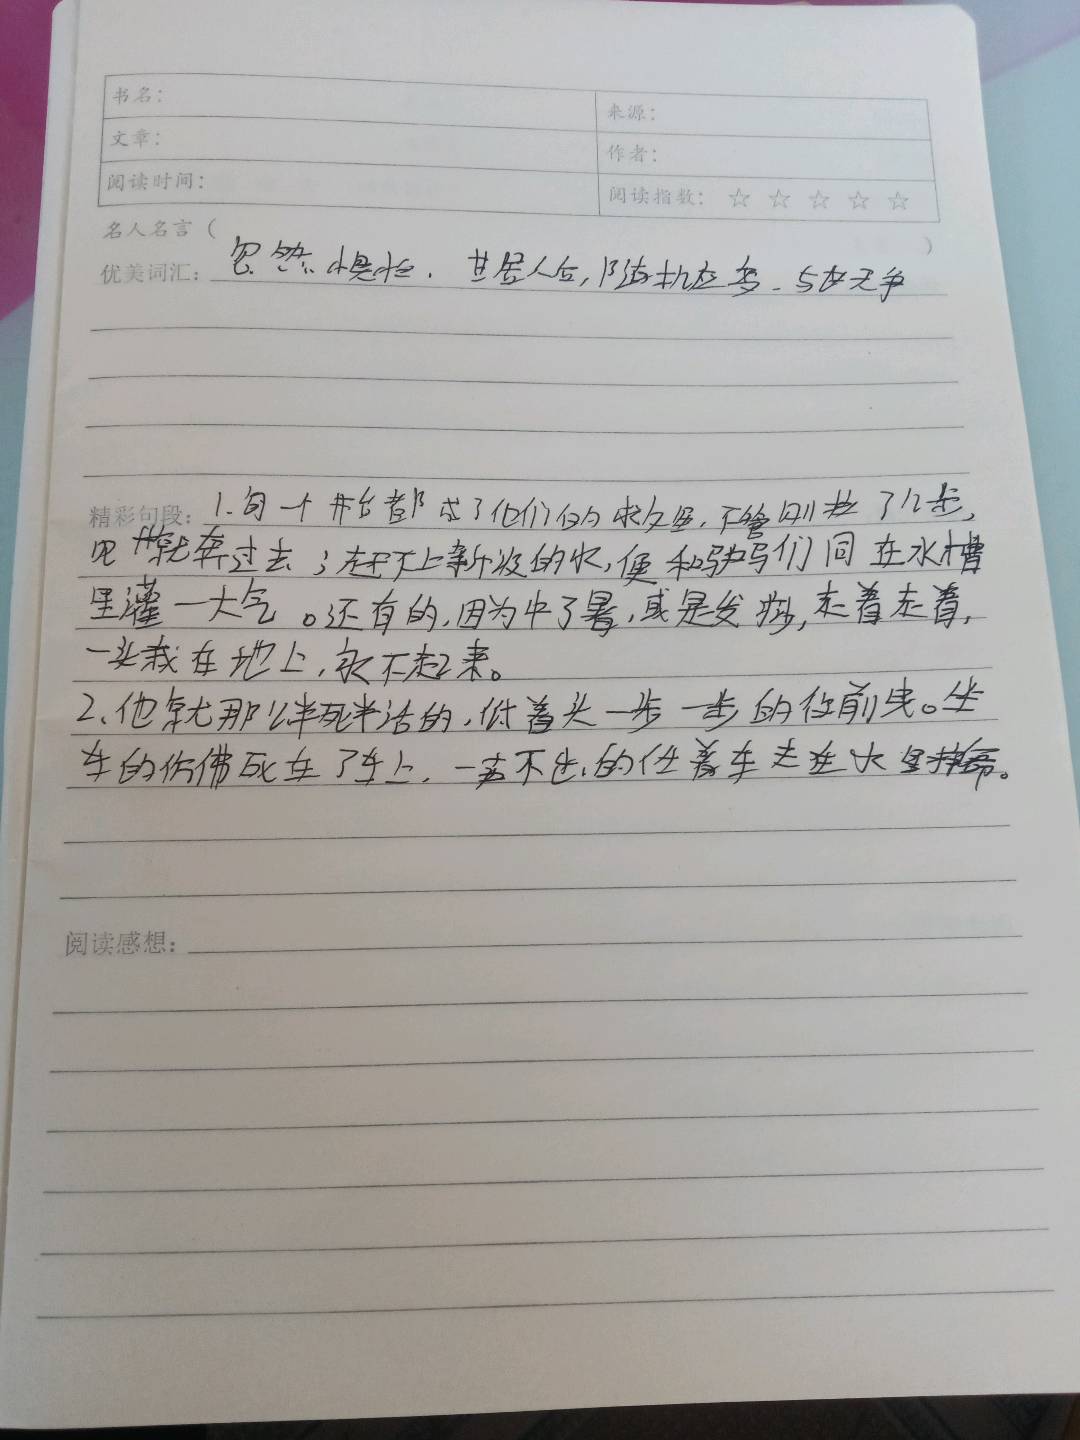 书名: 来源:
文章: 作者:
阅读时间: 阅读指数: ☆ ☆ ☆ ☆ ☆
名人名言 ( )
优美词汇: 忽然 甘居人后, 随机应变 与世无争
精彩句段: 1.每一个井台都成了他们的救命星, 不管刚拉了几步,
见井就奔过去;赶不上新汲的水,便和驴马们同在水槽
里灌一大气。还有的,因为中了暑,或是发痧,走着走着,
一头栽在地上,永不起来。
2.他就那么半死半活的,低着头一步一步的往前曳。坐
车的仿佛死在了车上,一声不出的任着车夫在水里挣命。
阅读感想: